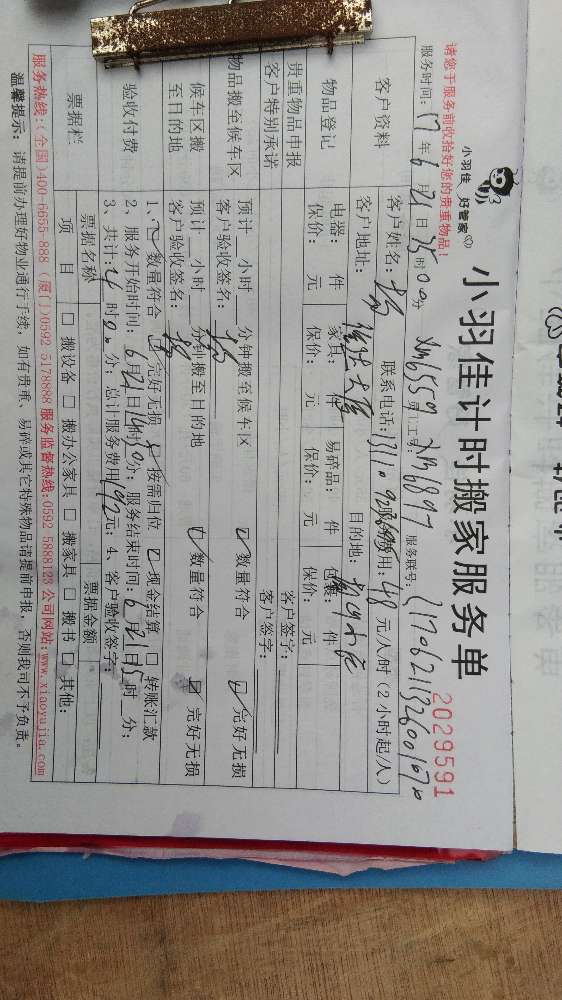 小羽佳 好管家
小羽佳计时搬家服务单
2029591
请您于服务前收拾好您的贵重物品!
服务时间: 17年6月21日 时00分 xm6559 员工工号: xm6897 服务联号:
客户资料
客户姓名: 杨 联系电话: 服务费用: 48元/人/时(2小时起/人)
客户地址: 目的地:
物品登记
电器: 件 家具: 件 易碎品: 件 包裹: 件
保价: 元 保价: 元 保价: 元 保价: 元
贵重物品申报 客户签字:
客户特别承诺 客户签字:
物品搬至候车区
预计__小时__分钟搬至候车区 ☑数量符合 ☑完好无损
客户验收签名: 杨
候车区搬至目的地
预计__小时__分钟搬至目的地 ☑数量符合 ☑完好无损
客户验收签名: 杨
验收付费
1、☑数量符合 ☑完好无损 ☑按需归位 ☑现金结算 □转账汇款
2、服务开始时间: 6月21日 时 分; 服务结束时间: 6月21日 时__分;
3、共计: 时 分; 总计服务费用192元; 4、客户验收签字:
票据栏
票据名称 票据金额
项目 □搬设备 □搬办公家具 □搬家具 □搬书 □其他:
服务热线:(全国)400-6655-888 (厦门)0592 5178888 服务监督热线:0592 5888123 公司网站:www.xiaoyujia.com
温馨提示: 请提前办理好物业通行手续, 如有贵重、易碎或其它特殊物品请提前申报, 否则我司不予负责。